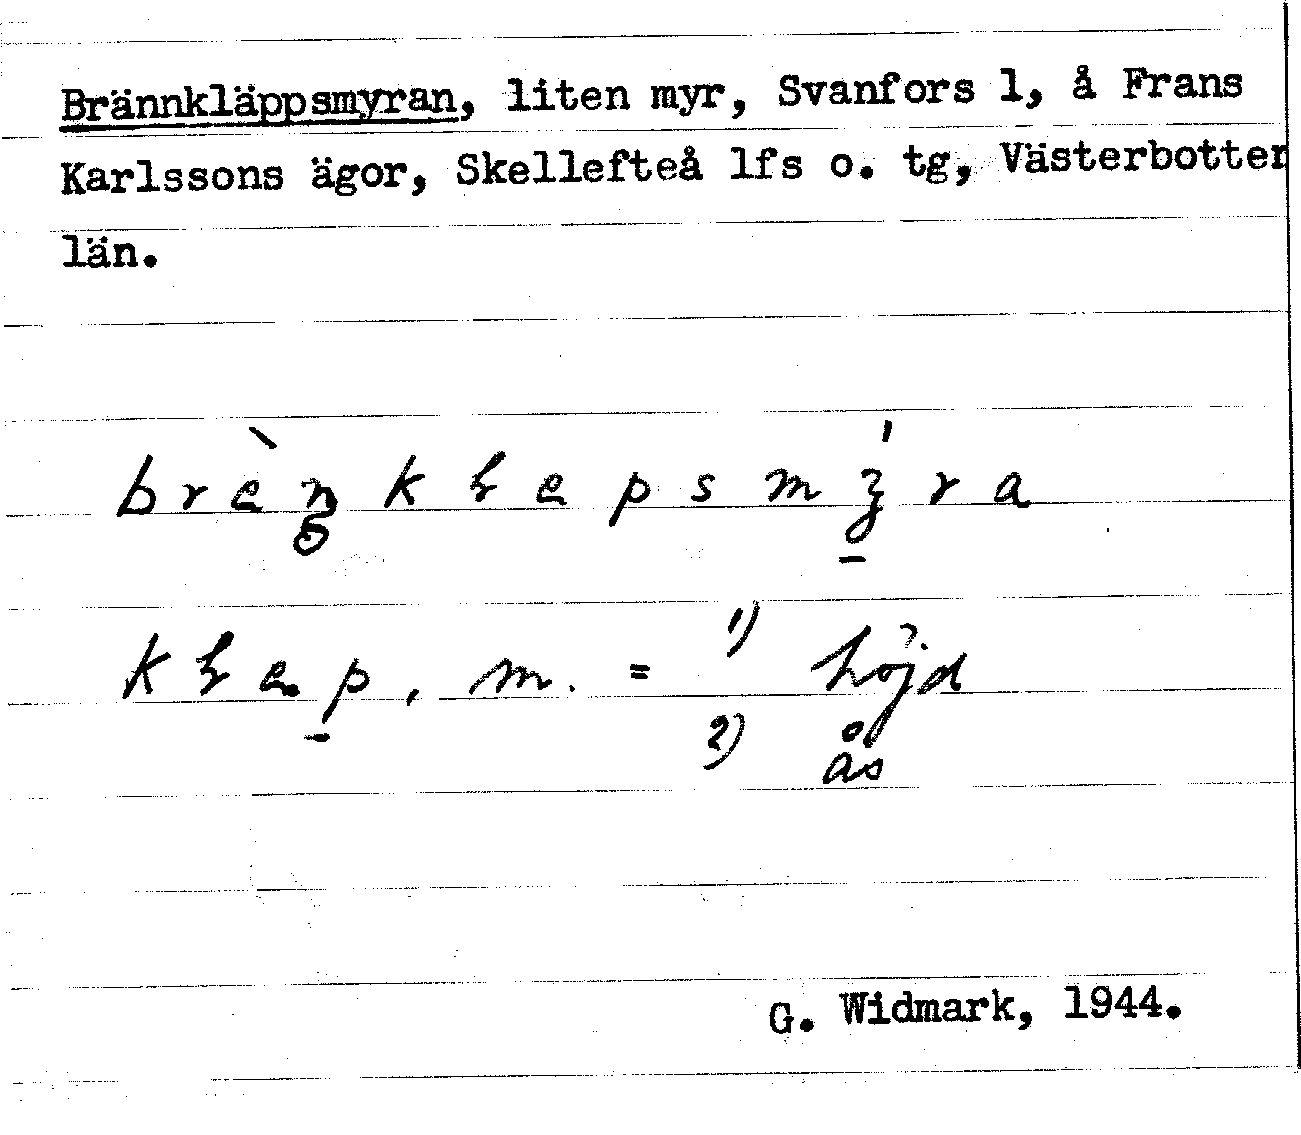 Brännkläppsmyran, liten myr, Svanfors 1, å Frans
Karlssons ägor, Skellefteå lfs o. tg, Västerbotten
län.
m. = 1) höjd
2) ås
G. Widmark, 1944.